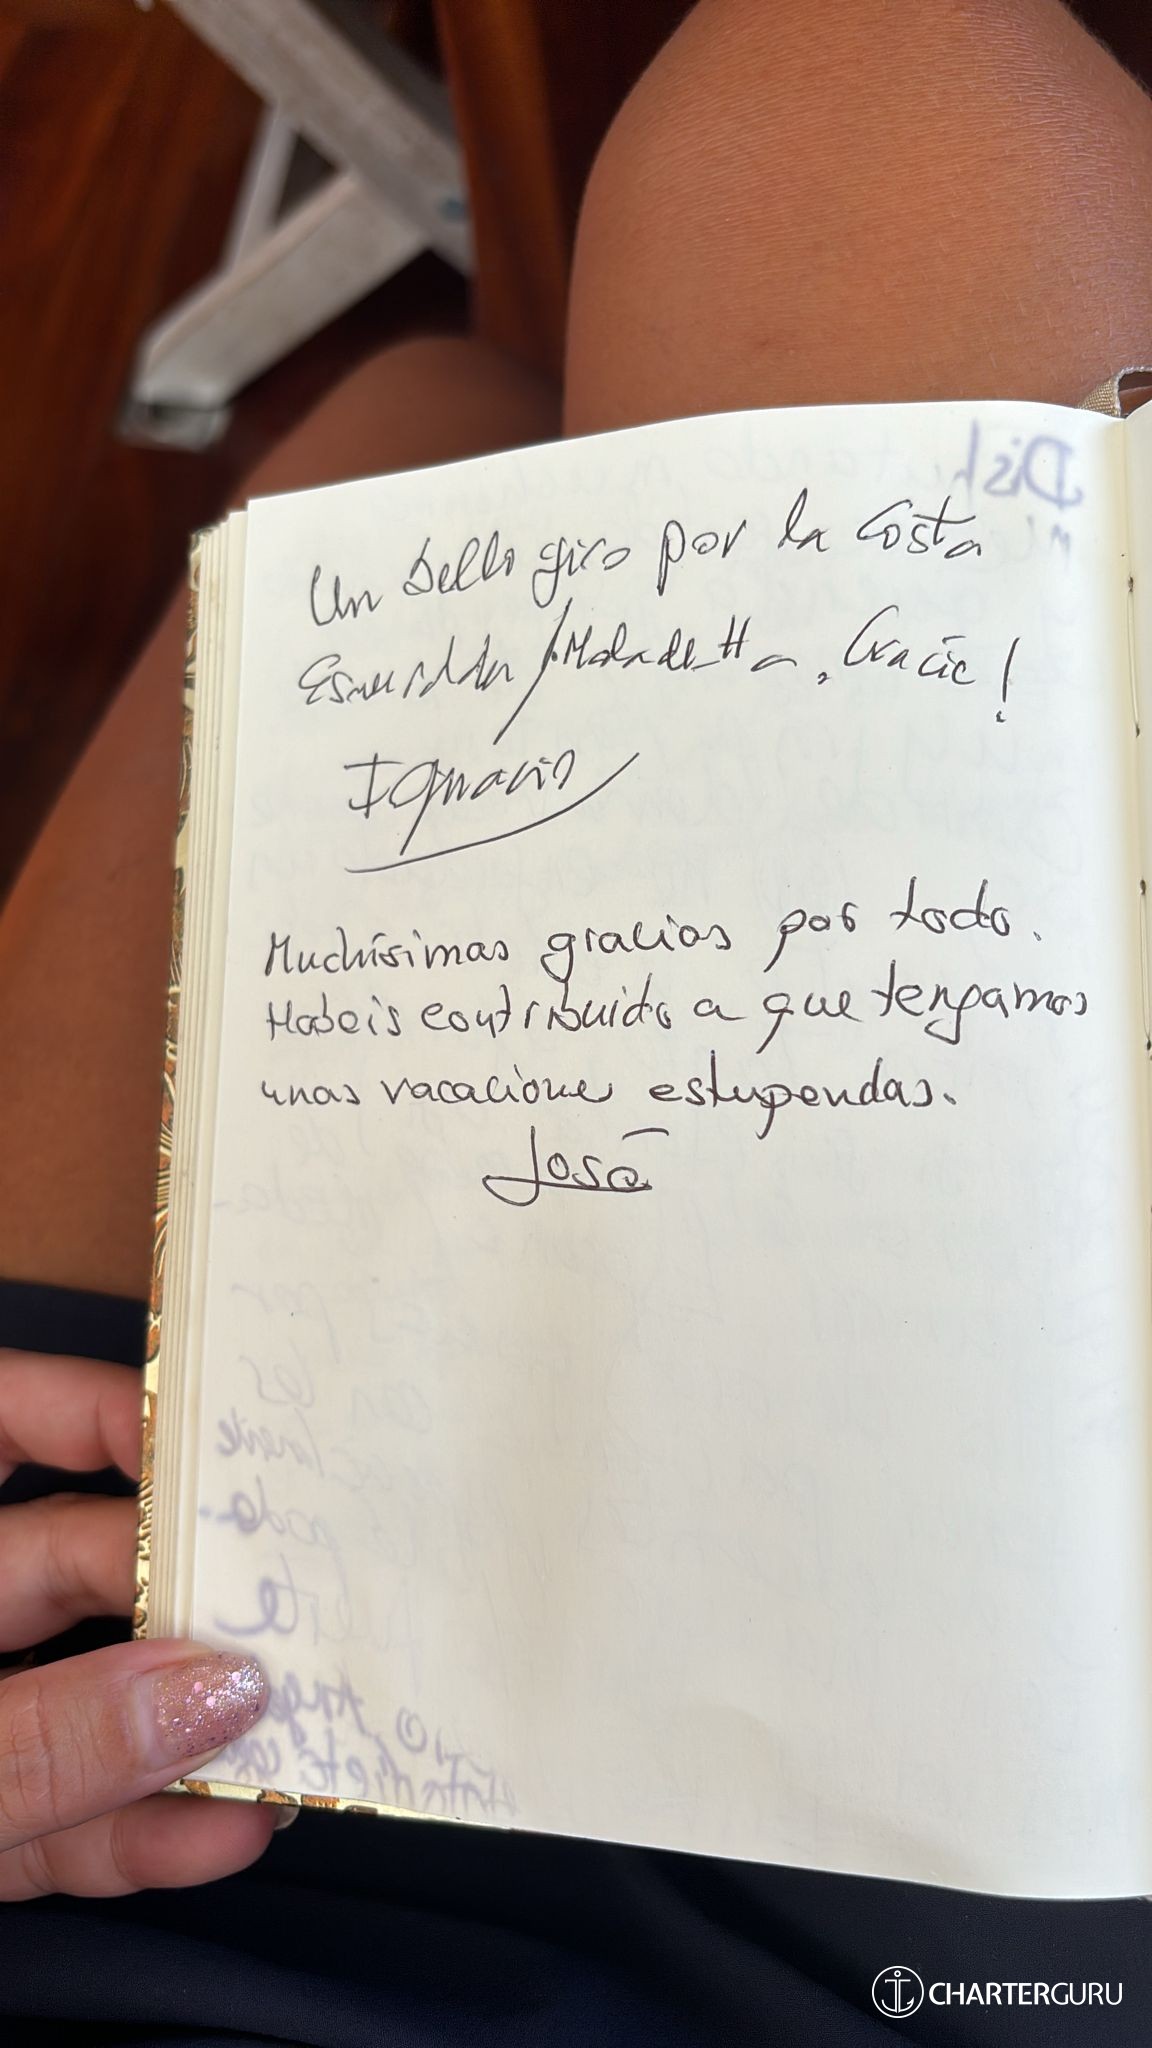 Un bello giro por la Costa
Esmeralda / Maladetta, Gracie!
Ignacio
Muchísimas gracias por todo.
Habeis contribuido a que tengamos
unas vacaciones estupendas.
José
CHARTERGURU